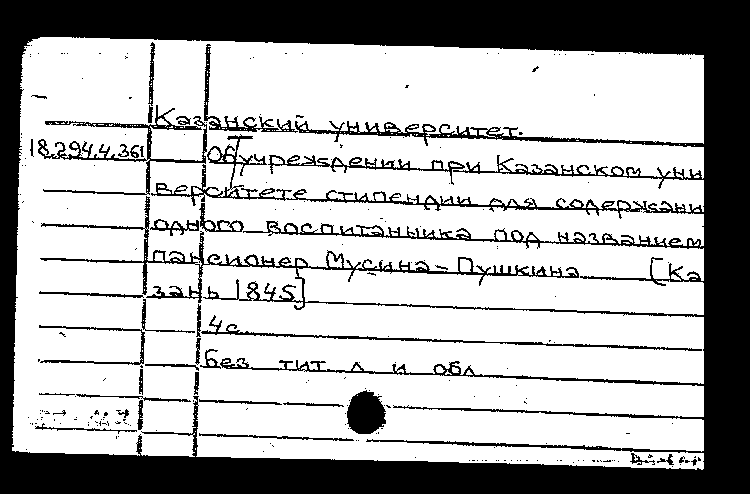 Казанский университет.
18.294.4.361 Об учреждении при Казанском уни
верситете стипендии для содержани
одного воспитанника под названием
пансионер Мусина-Пушкина [Ка
зань 1845]
4с.
без тит л и обл